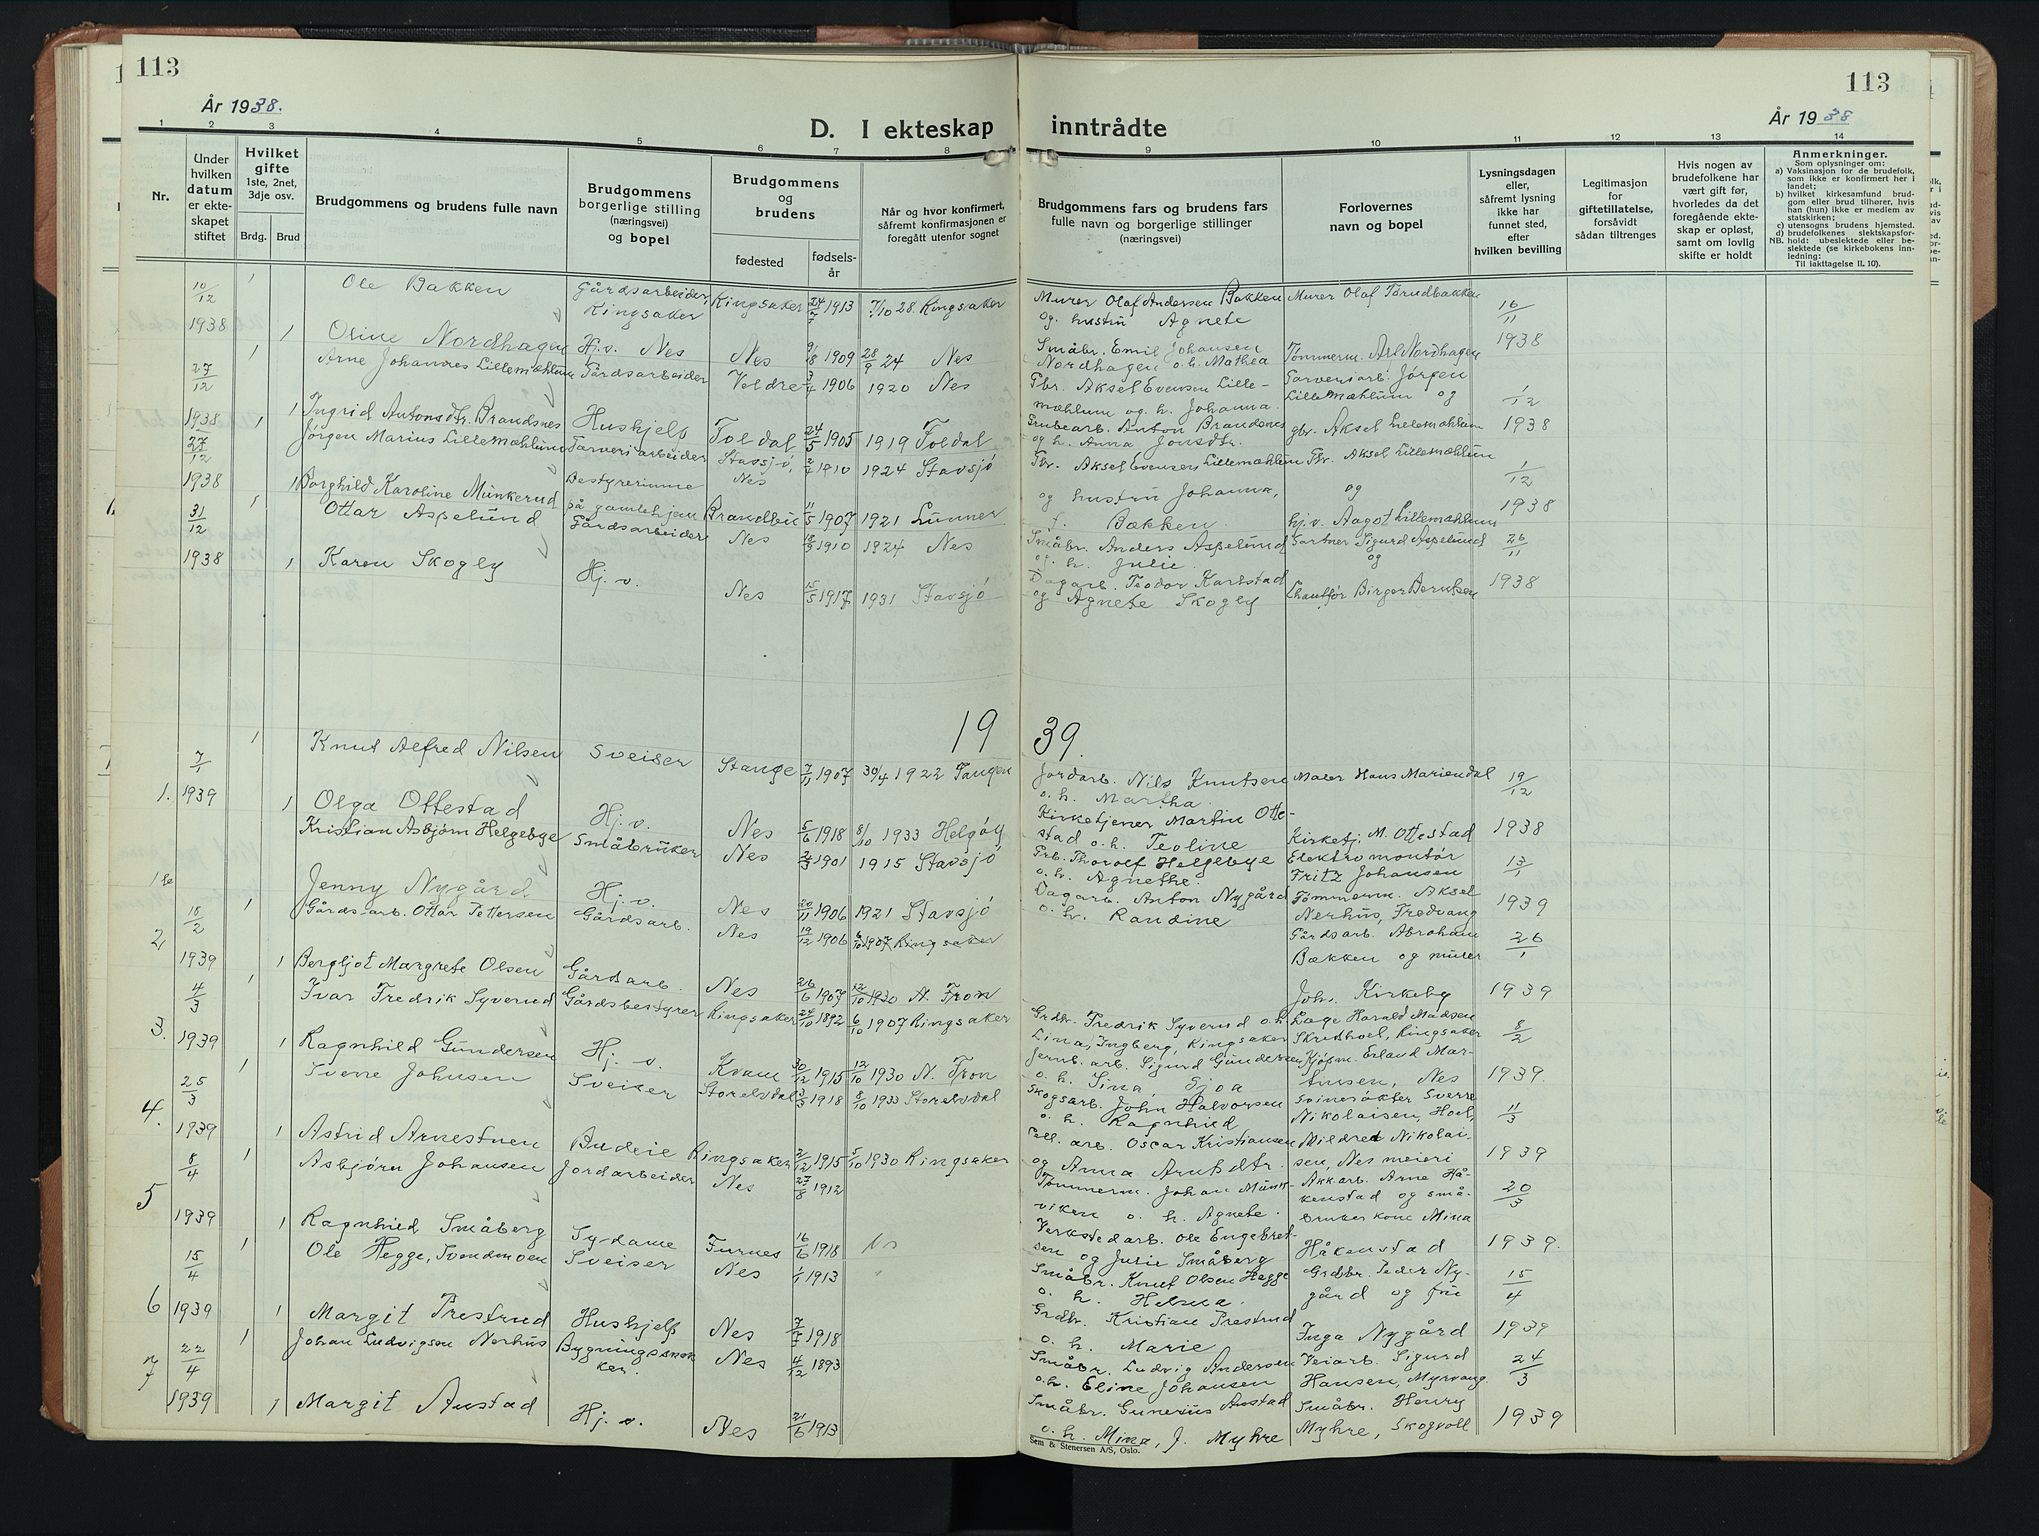 113
113
År 1938.
År 1938
D. I ekteskap inntrådte
1 2 3 4 5 6 7 8 9 10 11 12 13 14
Nr.
Under hvilken datum er ekteskapet stiftet
Hvilket gifte 1ste, 2net, 3dje osv.
Brdg. Brud
Brudgommens og brudens fulle navn
Brudgommens borgerlige stilling (næringsvei) og bopel
Brudgommens og brudens
fødested fødselsår
Når og hvor konfirmert, såfremt konfirmasjonen er foregått utenfor sognet
Brudgommens fars og brudens fars fulle navn og borgerlige stillinger (næringsvei)
Forlovernes navn og bopel
Lysningsdagen eller, såfremt lysning ikke har funnet sted, efter hvilken bevilling
Legitimasjon for giftetillatelse, forsåvidt sådan tiltrenges
Hvis nogen av brudefolkene har vært gift før, hvorledes da det foregående ekteskap er opløst, samt om lovlig skifte er holdt
Anmerkninger.
Som oplysninger om:
a) Vaksinasjon for de brudefolk, som ikke er konfirmert her i landet;
b) hvilket kirkesamfund brudgom eller brud tilhører, hvis han (hun) ikke er medlem av statskirken;
c) utensogns brudens hjemsted.
d) brudefolkenes slektskapsforhold: ubeslektede eller beslektede (se kirkebokens innledning:
NB. Til iakttagelse II. 10).
10/12 1938 1 Ole Bakken Gårdsarbeider, Ringsaker Ringsaker 24/7 1913 7/10 28. Ringsaker Murer Olaf Andersen Bakken og hustru Agnete Murer Olaf Tørudbakken 16/11
1 Oline Nordhagen Hj.v. Nes Nes 9/18 1909 28/9 24 Nes Småbr. Emil Johansen Nordhagen o.h. Mathea Tømmerm. Nordhagen 1938
27/12 1938 1 Arne Johannes Lillemæhlum Gårdsarbeider Veldre 3/4 1906 1920 Nes Gbr. Aksel Evensen Lillemæhlum og h. Johanna. Garveriarb. Jørgen Lillemæhlum og 1/12
1 Ingrid Antonsdtr. Brandsnes Hushjelp Foldal 24/5 1905 1919 Foldal Grubearb. Anton Brandenes og h. Anna Jonsdtr. gbr. Aksel Lillemæhlum 1938
27/12 1938 1 Jørgen Marius Lillemæhlum Garveriarbeider Stavsjø, Nes 2/7 1910 1924 Stavsjø Gbr. Aksel Evensen Lillemæhlum og hustru Johanna, Gbr. Aksel Lillemæhlum og 1/12
1 Borghild Karoline Munkerud Bestyrerinne på gamlehjem Brandbu 11/5 1907 1921 Lunner f. Bakken. hj.v. Aagot Lillemæhlum 1938
31/12 1938 1 Ottar Aspelund Gårdsarbeider Nes 18/9 1910 1924 Nes Småbr. Anders Aspelund og h. Julie. Gartner Sigurd Aspelund og 26/11
1 Karen Skogly Hj. v. Nes 15/5 1917 1931 Stavsjø Dagarb. Teodor Karlstad og Agnete Skogly Chauffør Birger Berntsen 1938
19 39.
1. 7/1 1939 1 Knut Alfred Nilsen Sveiser Stange 7/11 1907 30/4 1922 Tangen Jordarb. Nils Knutsen o.h. Martha. Maler Hans Mariendal 19/12
1 Olga Ottestad Hj.v. Nes 5/6 1918 8/10 1933 Helgøy Kirketjener Martin Ottestad o.h. Teoline Kirketj. M. Ottestad 1938
Kristian Asbjørn Helgebye Småbruker Nes 24/3 1901 1915 Stavsjø Grb. Thorolf Helgebye o.h. Agnethe. Elektromontør Fritz Johansen 13/1
Jenny Nygård Hj.v. Nes 20/11 1906 1921 Stavsjø Dagarb. Anton Nygård o.h. Randine Tømmerm. Aksel Nerhus, Fredvang 1939
2, 18/2 1939 1 Gårdsarb. Ottar Pettersen Gårdsarb. Nes 19/12 1906 6/10 1907 Ringsaker Gårdsarb. Abraham Bækken og murer 26/1
1 Bergljot Margrete Olsen Gårdsarb. Nes 26/6 1907 12/10 1930 N. Fron Joh. Kirkeby 1939
3. 4/3 1939 1 Ivar Fredrik Syverud Gårdsbestyrer Ringsaker 24/10 1892 6/10 1907 Ringsaker Grdbr. Fredrik Syverud o.h. Lina, Ingberg, Ringsaker Læge Harald Madsen Skredhoel, Ringsaker 8/2
1 Ragnhild Gundersen Hj. v. Kvam 30/12 1915 12/10 1930 N. Fron Jernb. arb. Sigurd Gundersen o.h. Sina, Kjøpm. Erland Martinsen, Nes 1939.
4. 25/3 1939 1 Svene Johnsen Sveiser Storelvdal 3/3 1918 8/10 1933 Storelvdal Skogsarb. John Halvorsen o. h. Ragnhild Svinerøkter Sverre Nikolaisen, Hoel, 11/3
1 Astrid Arnestuen Budeie Ringsaker 2/12 1915 5/10 1930 Ringsaker Cell. arb. Oscar Kristiansen og Anna Arntsdtr. Mildred Nikolaisen, Nes meieri 1939
5 8/4 1939 1 Asbjørn Johansen Jordarbeider Nes 27/8 1912 Tømmerm. Johan Munkviken o. h. Agnete. Akkarb. Arne Håkenstad og småbruker kone Mina 20/3
1 Ragnhild Småberg Sydame Furnes 16/6 1918 Verkstedarb. Ole Engebretsen og Julie Småberg Håkenstad 1939.
6 15/4 1939 1 Ole Hegge, Svendmoen Sveiser Nes 1/1 1913 Småbr. Knut Olsen Hegge o. h. Helma. Grdbr. Peder Nygård og frue 15/4
1 Margit Prestrud Hushjelp Nes 7/7 1918 Grdbr. Kristian Prestrud o. h. Marie Inga Nygård 1939
7 22/4 1939 1 Johan Ludvigsen Nerhus Bygningssnekker. Nes 4/12 1893 Småbr. Ludvig Andersen o.h. Eline Johansen Veiarb. Sigurd Hansen, Myrvang. 24/3
1 Margit Anstad Hj. v. Nes 21/6 1913 Småbr. Gunerius Anstad o.h. Mina, f. Myhre Småbr. Henry Myhre, Skogvoll 1939
Sem & Stenersen A/S, Oslo.